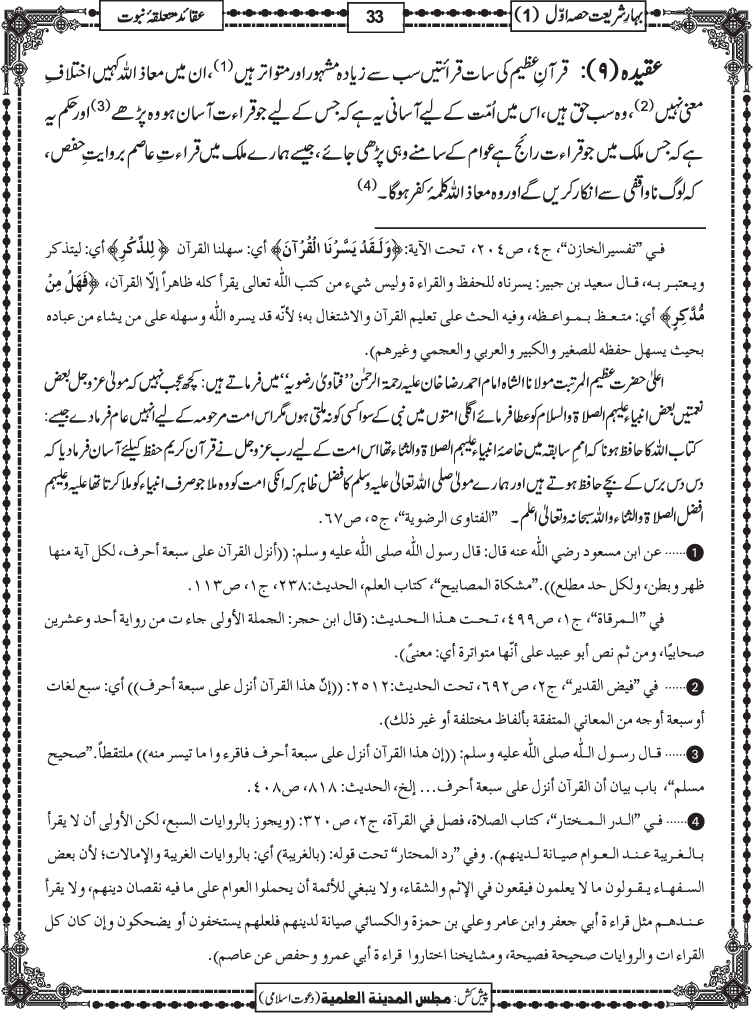 بہارِ شریعت حصہ اوّل (1)
33
عقائد متعلقۂ نبوت
عقیدہ (۹): قرآنِ عظیم کی سات قرائتیں سب سے زیادہ مشہور اور متواتر ہیں (1)، ان میں معاذ اللہ کہیں اختلافِ
معنی نہیں (2)، وہ سب حق ہیں، اس میں اُمّت کے لیے آسانی یہ ہے کہ جس کے لیے جو قراءت آسان ہو وہ پڑھے (3) اور حکم یہ
ہے کہ جس ملک میں جو قراءت رائج ہے عوام کے سامنے وہی پڑھی جائے، جیسے ہمارے ملک میں قراءتِ عاصم بروایتِ حفص،
کہ لوگ ناواقفی سے انکار کریں گے اور وہ معاذ اللہ کلمۂ کفر ہوگا۔ (4)
فـي ”تفسيرالخازن“، ج٤، ص٢٠٤، تحت الآية:﴿وَلَـقَدْ يَسَّرْنَا الْقُرْآنَ﴾ أي: سهلنا القرآن ﴿لِلذِّكْرِ﴾ أي: ليتذكر
ويـعتبـر بـه، قـال سعيد بن جبير: يسرناه للحفظ والقراءة وليس شيء من كتب اللّٰه تعالى يقرأ كله ظاهراً إلّا القرآن، ﴿فَهَلْ مِنْ
مُّدَّكِرٍ﴾ أي: متـعـظ بـمـواعـظه، وفيه الحث على تعليم القرآن والاشتغال به؛ لأنّه قد يسره اللّٰه وسهله على من يشاء من عباده
بحيث يسهل حفظه للصغير والكبير والعربي والعجمي وغيرهم).
اعلیٰ حضرت عظیم المرتبت مولانا الشاہ امام احمد رضا خان علیہ رحمۃ الرحمٰن ”فتاویٰ رضویہ“ میں فرماتے ہیں: کچھ عجب نہیں کہ مولیٰ عزوجل بعض
نعمتیں بعض انبیاء علیہم الصلاۃ والسلام کو عطا فرمائے اگلی امتوں میں نبی کے سوا کسی کو نہ ملتی ہوں مگر اس امت مرحومہ کے لیے انہیں عام فرما دے جیسے:
کتاب اللہ کا حافظ ہونا کہ اممِ سابقہ میں خاصۂ انبیاء علیہم الصلاۃ والثناء تھا اس امت کے لیے رب عزوجل نے قرآن کریم حفظ کیلئے آسان فرما دیا کہ
دس دس برس کے بچے حافظ ہوتے ہیں اور ہمارے مولیٰ صلی اللہ تعالیٰ علیہ وسلم کا فضل ظاہر کہ انکی امت کو وہ ملا جو صرف انبیاء کو ملا کرتا تھا علیہ وعلیہم
افضل الصلاۃ والثناء واللہ سبحانہ وتعالیٰ اعلم۔ ”الفتاوى الرضوية“، ج٥، ص٦٧.
1 ...... عن ابن مسعود رضي اللّٰه عنه قال: قال رسول اللّٰه صلى اللّٰه عليه وسلم: ((أنزل القرآن على سبعة أحرف، لكل آية منها
ظهر وبطن، ولكل حد مطلع)).”مشكاة المصابيح“، كتاب العلم، الحديث:٢٣٨، ج١، ص١١٣.
في ”الـمرقاة“، ج١، ص٤٩٩، تـحـت هـذا الـحـديث: (قال ابن حجر: الجملة الأولى جاءت من رواية أحد وعشرين
صحابيًا، ومن ثم نص أبو عبيد على أنّها متواترة أي: معنىً).
2 ...... في ”فيض القدير“، ج٢، ص٦٩٢، تحت الحديث:٢٥١٢: ((إنّ هذا القرآن أنزل على سبعة أحرف)) أي: سبع لغات
أو سبعة أوجه من المعاني المتفقة بألفاظ مختلفة أو غير ذلك).
3 ...... قـال رسـول الـلّٰه صلى اللّٰه عليه وسلم: ((إن هذا القرآن أنزل على سبعة أحرف فاقرءوا ما تيسر منه)) ملتقطاً.”صحيح
مسلم“، باب بيان أن القرآن أنزل على سبعة أحرف... إلخ، الحديث: ٨١٨، ص٤٠٨.
4 ...... فـي ”الـدر الـمـختار“، كتاب الصلاة، فصل في القرآة، ج٢، ص٣٢٠: (ويجوز بالروايات السبع، لكن الأولى أن لا يقرأ
بـالـغـريبة عـنـد الـعـوام صيـانة لـدينهم). وفي ”رد المحتار“ تحت قوله: (بالغريبة) أي: بالروايات الغريبة والإمالات؛ لأن بعض
السـفهـاء يـقـولـون ما لا يعلمون فيقعون في الإثم والشقاء، ولا ينبغي للأئمة أن يحملوا العوام على ما فيه نقصان دينهم، ولا يقرأ
عـنـدهـم مثل قراءة أبي جعفر وابن عامر وعلي بن حمزة والكسائي صيانة لدينهم فلعلهم يستخفون أو يضحكون وإن كان كل
القراءات والروايات صحيحة فصيحة، ومشايخنا اختاروا قراءة أبي عمرو وحفص عن عاصم).
پیش کش: مجلس المدينة العلمية (دعوتِ اسلامی)